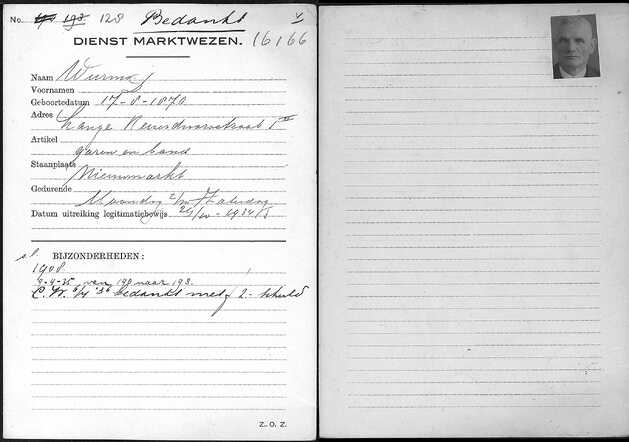 No. 198 193 128 Bedankt v
DIENST MARKTWEZEN. 16166
Naam Wurms
Voornamen
Geboortedatum 17-8-1870
Adres
Lange
Artikel
garen en band
Staanplaats
Nieuwmarkt
Gedurende
Maandag t/m Zaterdag
Datum uitreiking legitimatiebewijs 1934
BIJZONDERHEDEN:
1908
9-4-35 van 198 naar 193.
C.W. '36 bedankt met f 2.- schuld
Z. O. Z.